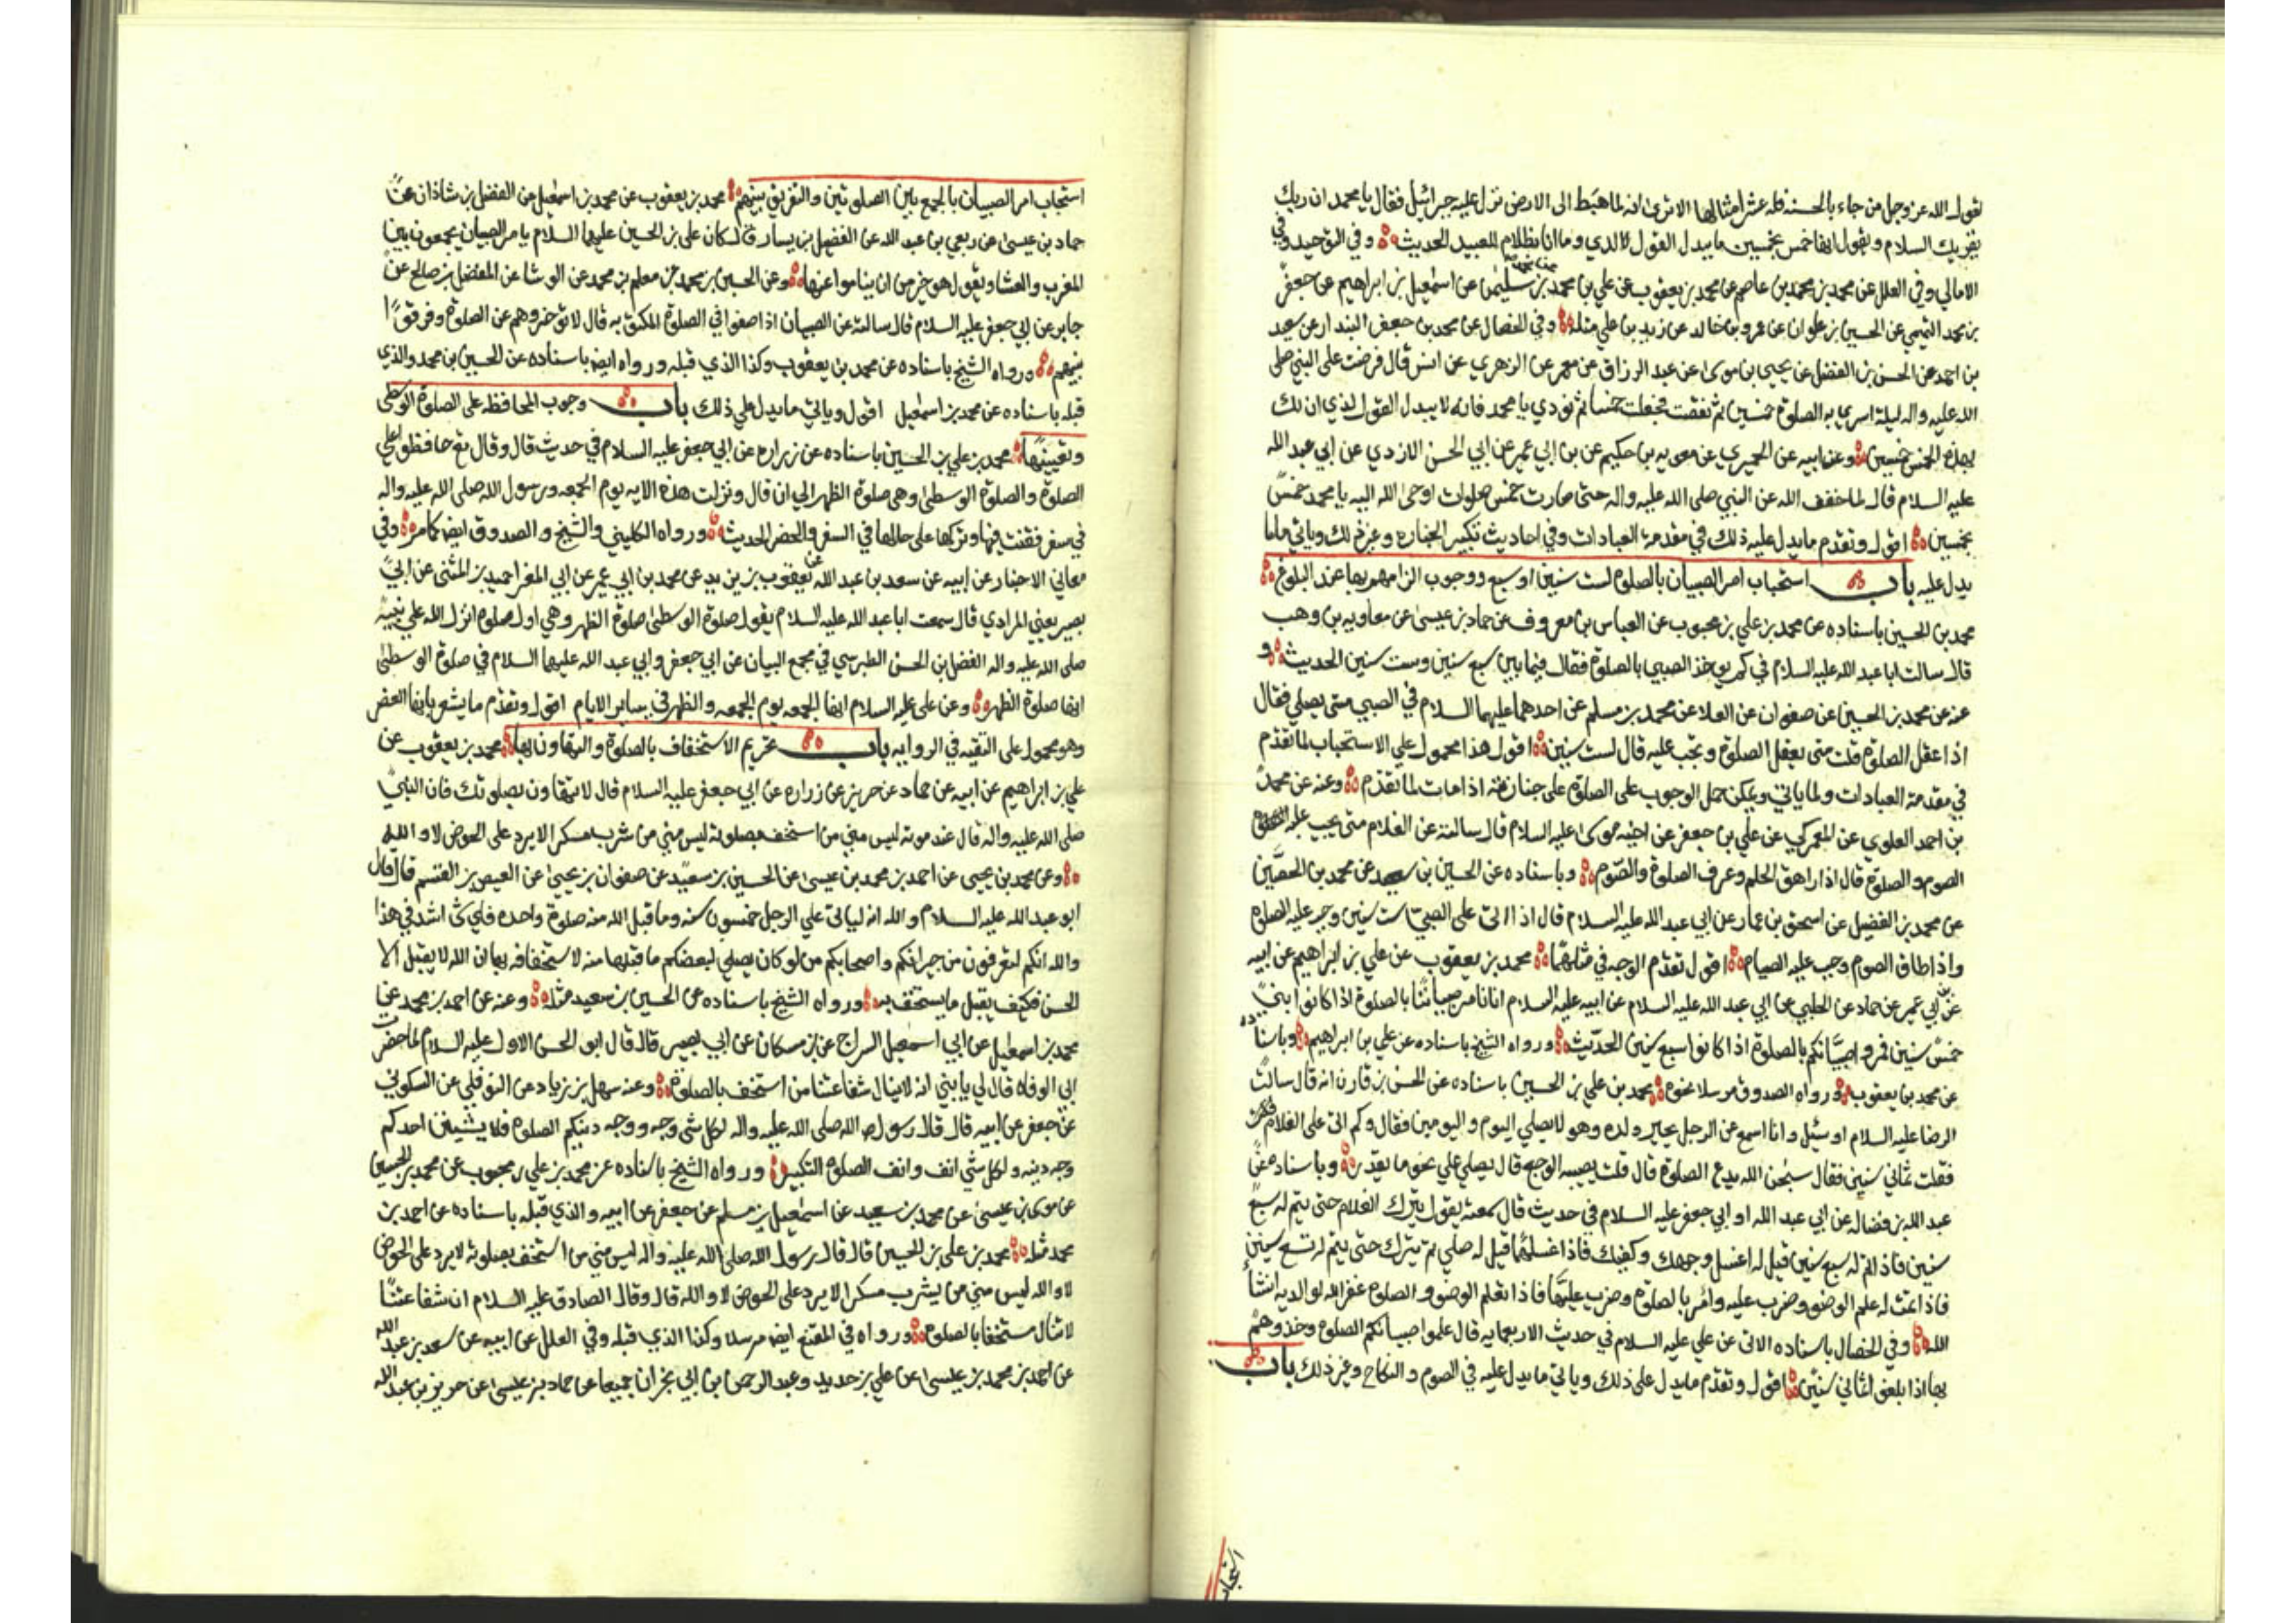 لقول الله عز وجل من جاء بالحسنه فله عشر امثالها الا ترى انه لما هبط الى الارض نزل عليه جبرائيل فقال يا محمد ان ربك
يقريك السلام ويقول انها خمس بخمسين ما يبدل القول لدي وما انا بظلام للعبيد الحديث وفي التوحيد وفي
الامالي وفي العلل عن محمد بن محمد بن عاصم عن محمد بن يعقوب عن علي بن محمد بن سليمن عن اسمعيل بن ابراهيم عن جعفر
بن محمد التميمي عن الحسين بن علوان عن عمرو بن خالد عن زيد بن علي مثله وفي الخصال عن محمد بن جعفر البندار عن سعيد
بن احمد عن الحسن بن الفضل عن يحيى بن موسى عن عبد الرزاق عن معمر عن الزهري عن انس قال فرضت على النبي صلى
الله عليه واله ليلة اسري به الصلوة خمسين ثم نقصت فجعلت خمسا ثم نودي يا محمد فانه لا يبدل القول لدي ان لك
بهذه الخمس خمسين وعن ابيه عن الحميري عن معويه بن حكيم عن بن ابي عمير عن ابي الحسن الازدي عن ابي عبد الله
عليه السلام قال لما خفف الله عن النبي صلى الله عليه واله حتى صارت خمس صلوات اوحى الله اليه يا محمد خمس
بخمسين اقول وتقدم ما يدل عليه ذلك في مقدمة العبادات وفي احاديث تكبير الجنازه وغير ذلك وياتي ما
يدل عليه باب استحباب امر الصبيان بالصلوة لست سنين او سبع ووجوب الزامهم بها عند البلوغ
محمد بن الحسين باسناده عن محمد بن علي بن محبوب عن العباس بن معروف عن حماد بن عيسى عن معاويه بن وهب
قال سالت ابا عبد الله عليه السلام في كم يوخذ الصبي بالصلوة فقال فيما بين سبع سنين وست سنين الحديث و
عنه عن محمد بن الحسين عن صفوان عن العلا عن محمد بن مسلم عن احدهما عليهما السلام في الصبي متى يصلي فقال
اذا عقل الصلوة قلت متى يعقل الصلوة وتجب عليه قال لست سنين اقول هذا محمول على الاستحباب لما تقدم
في مقدمة العبادات ولما ياتي ويمكن حمل الوجوب على الصلوة على جنازته اذا مات لما تقدم وعنه عن محمد
بن احمد العلوي عن العمركي عن علي بن جعفر عن اخيه موسى عليه السلام قال سالته عن الغلام متى يجب عليه
الصوم والصلوة قال اذا راهق الحلم وعرف الصلوة والصوم وباسناده عن الحسين بن سعيد عن محمد بن الحصين
عن محمد بن الفضيل عن اسحق بن عمار عن ابي عبد الله عليه السلام قال اذا اتى على الصبي ست سنين وجب عليه الصلوة
واذا اطاق الصوم وجب عليه الصيام اقول تقدم الوجه في مثلهما محمد بن يعقوب عن علي بن ابراهيم عن ابيه
عن بن ابي عمير عن حماد عن الحلبي عن ابي عبد الله عليه السلام عن ابيه عليه السلام انا نامر صبياننا بالصلوة اذا كانوا بني
خمس سنين فمروا صبيانكم بالصلوة اذا كانوا سبع سنين الحديث ورواه الشيخ باسناده عن علي بن ابراهيم وباسناده
عن محمد بن يعقوب ورواه الصدوق مرسلا نحوه محمد بن علي بن الحسين باسناده عن الحسن بن قارن انه قال سالت
الرضا عليه السلام او سئل وانا اسمع عن الرجل يجبر ولده وهو لا يصلي اليوم واليومين فقال وكم اتى على الغلام
فقلت ثماني سنين فقال سبحن الله يدع الصلوة قال قلت يصيبه الوجع قال يصلي على نحو ما يقدر وباسناده عن
عبد الله بن فضال عن ابي عبد الله او ابي جعفر عليه السلام في حديث قال سمعته يقول يترك الغلام حتى يتم له سبع
سنين فاذا تم له سبع سنين قيل له اغسل وجهك وكفيك فاذا غسلهما قيل له صلي ثم يترك حتى يتم له تسع سنين
فاذا تمت له علم الوضو وضرب عليه وامر بالصلوة وضرب عليها فاذا تعلم الوضو والصلوة غفر الله لوالديه انشا
الله وفي الخصال باسناده الاتي عن علي عليه السلام في حديث الاربعمايه قال علموا صبيانكم الصلوة وخذوهم
بها اذا بلغوا ثماني سنين اقول وتقدم ما يدل على ذلك وياتي ما يدل عليه في الصوم والنكاح وغير ذلك باب
استحباب
استحباب امر الصبيان بالجمع بين الصلوتين والتفريق بينهم محمد بن يعقوب عن محمد بن اسمعيل عن الفضل بن شاذان عن
حماد بن عيسى عن ربعي بن عبد الله عن الفضيل بن يسار قال كان علي بن الحسين عليهما السلام يامر الصبيان يجمعون بين
المغرب والعشا ويقول هو خير من ان يناموا عنها وعن الحسين بن محمد عن معلى بن محمد عن الوشا عن المفضل بن صالح عن
جابر عن ابي جعفر عليه السلام قال سالته عن الصبيان اذا صفوا في الصلوة المكتوبه قال لا توخروهم عن الصلوة وفرقوا
بينهم ورواه الشيخ باسناده عن محمد بن يعقوب وكذا الذي قبله ورواه ايضا باسناده عن الحسين بن محمد والذي
قبله باسناده عن محمد بن اسمعيل اقول وياتي ما يدل على ذلك باب وجوب المحافظه على الصلوة الوسطى
وتعيينها محمد بن علي بن الحسين باسناده عن زراره عن ابي جعفر عليه السلام في حديث قال وقال تع حافظوا على
الصلوة والصلوة الوسطى وهي صلوة الظهر الى ان قال ونزلت هذه الايه يوم الجمعه ورسول الله صلى الله عليه واله
في سفر فقنت فيها وتركها على حالها في السفر والحضر الحديث ورواه الكليني والشيخ والصدوق ايضا كما مر وفي
معاني الاخبار عن ابيه عن سعد بن عبد الله عن يعقوب بن يزيد عن محمد بن ابي عمير عن ابي المغرا حميد بن المثنى عن ابي
بصير يعني المرادي قال سمعت ابا عبد الله عليه السلام يقول صلوة الوسطى صلوة الظهر وهي اول صلوة انزل الله على نبيه
صلى الله عليه واله الفضل بن الحسن الطبرسي في مجمع البيان عن ابي جعفر وابي عبد الله عليهما السلام في صلوة الوسطى
انها صلوة الظهر وعن علي عليه السلام انها الجمعه يوم الجمعه والظهر في ساير الايام اقول وتقدم ما يشعر بانها العصر
وهو محمول على التقيه في الروايه باب تحريم الاستخفاف بالصلوة والتهاون بها محمد بن يعقوب عن
علي بن ابراهيم عن ابيه عن حماد عن حريز عن زراره عن ابي جعفر عليه السلام قال لا تتهاون بصلوتك فان النبي
صلى الله عليه واله قال عند موته ليس مني من استخف بصلوته ليس مني من شرب مسكرا لا يرد على الحوض لا والله
وعن محمد بن يحيى عن احمد بن محمد بن عيسى عن الحسين بن سعيد عن صفوان بن يحيى عن العيص بن القسم قال قال
ابو عبد الله عليه السلام والله انه لياتي على الرجل خمسون سنه وما قبل الله منه صلوة واحده فاي شى اشد في هذا
والله انكم لتعرفون من جيرانكم واصحابكم من لو كان يصلي لبعضكم ما قبلها منه لاستخفافه بها ان الله لا يقبل الا
الحسن فكيف يقبل ما يستخف به ورواه الشيخ باسناده عن الحسين بن سعيد مثله وعنه عن احمد بن محمد عن
محمد بن اسمعيل عن ابي اسمعيل السراج عن بن مسكان عن ابي بصير قال قال ابو الحسن الاول عليه السلام لما حضرت
ابي الوفاه قال لي يا بني انه لا ينال شفاعتنا من استخف بالصلوة وعنه سهل بن زياد عن النوفلي عن السكوني
عن جعفر عن ابيه قال قال رسول الله صلى الله عليه واله لكل شى وجه ووجه دينكم الصلوة فلا يشينن احدكم
وجه دينه ولكل شي انف وانف الصلوة التكبير ورواه الشيخ باسناده عن محمد بن علي بن محبوب عن محمد بن الحسين
عن موسى بن عيسى عن محمد بن سعيد عن اسمعيل بن مسلم عن جعفر عن ابيه والذي قبله باسناده عن احمد بن
محمد مثله محمد بن علي بن الحسين قال قال رسول الله صلى الله عليه واله ليس مني من استخف بصلوته لا يرد على الحوض
لا والله ليس مني من يشرب مسكرا لا يرد على الحوض لا والله قال وقال الصادق عليه السلام ان شفاعتنا
لا تنال مستخفا بالصلوة ورواه في المقنع ايضا مرسلا وكذا الذي قبله وفي العلل عن ابيه عن سعد بن عبد الله
عن احمد بن محمد بن عيسى عن علي بن حديد وعبد الرحمن بن ابي نجران جميعا عن حماد بن عيسى عن حريز بن عبد الله